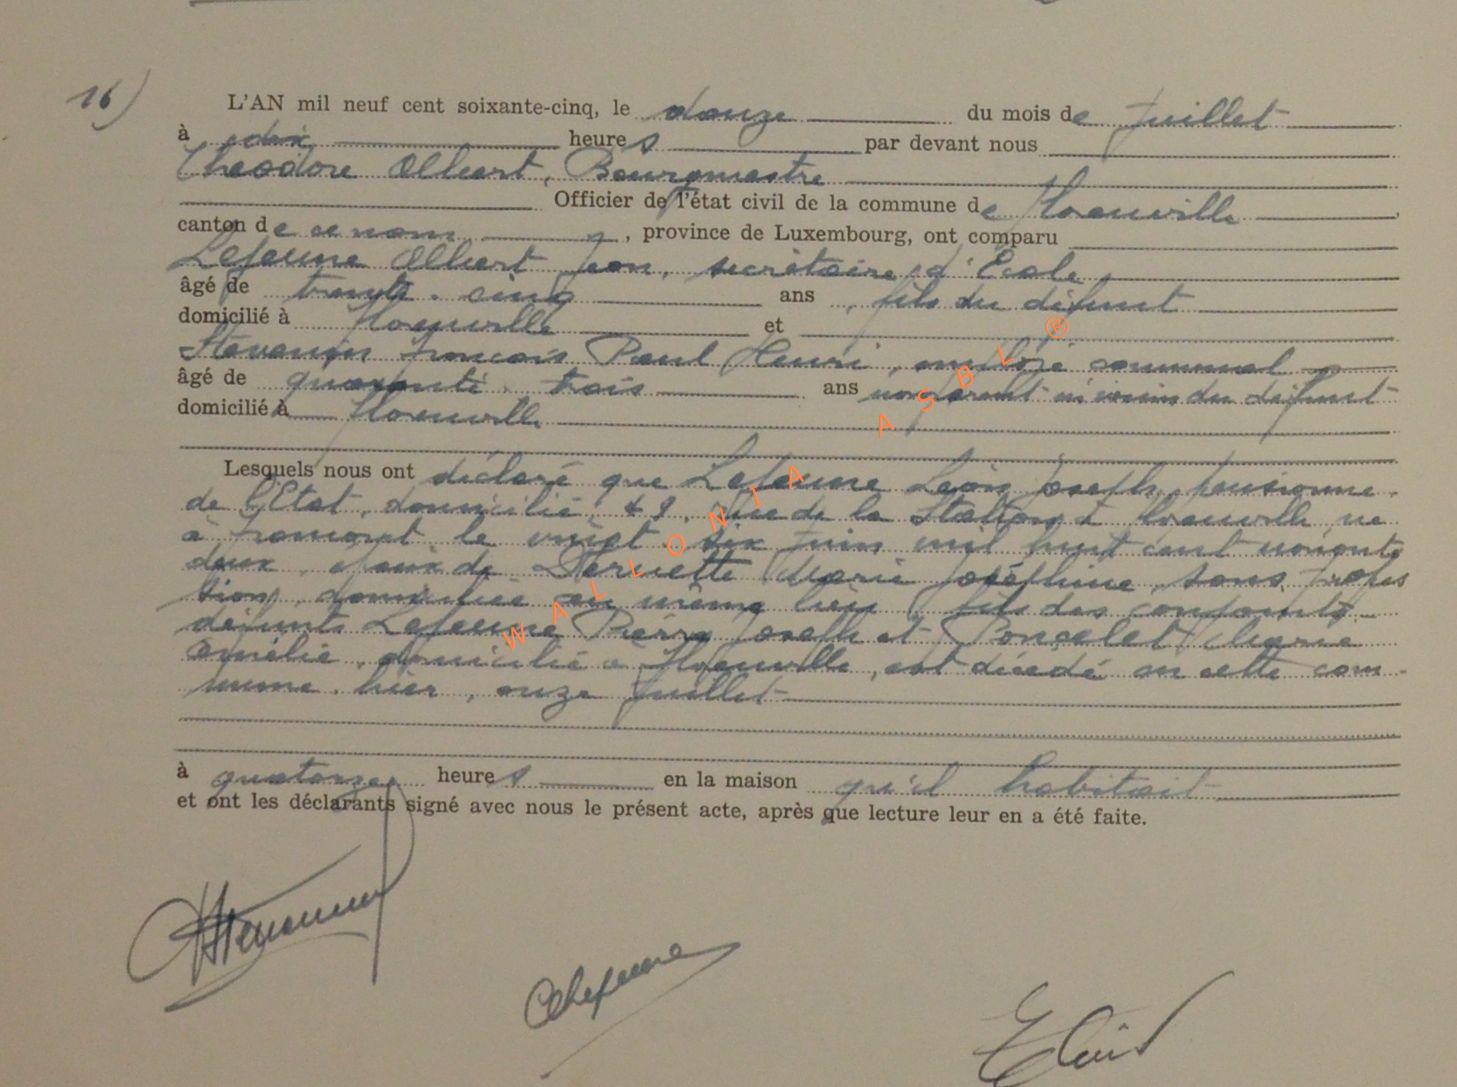 16)
L'AN mil neuf cent soixante-cinq, le douze du mois de Juillet
à dix heures par devant nous
Théodore Albert, Bourgmestre
Officier de l'état civil de la commune de Florenville
canton de ce nom, province de Luxembourg, ont comparu
Lejeune Albert Jean, secrétaire d'Ecole,
âgé de trente-cinq ans, fils du défunt
domicilié à Florenville et
François Paul Henri, employé communal
âgé de quarante-trois ans non parent ni voisin du défunt
domicilié à Florenville
Lesquels nous ont déclaré que Lejeune Léon Joseph, pensionné
de l'Etat, domicilié, 49, Rue de la Station à Florenville né
à le vingt-six Juin mil huit cent nonante
deux, époux de Marie Joséphine, sans profes
sion, domiciliée au même lieu, fils des conjoints
défunts Lejeune Pierre Joseph et Poncelet Marie
Amélie, domicilié à Florenville, est décédé en cette com-
mune, hier, onze Juillet
à quatorze heures en la maison qu'il habitait
et ont les déclarants signé avec nous le présent acte, après que lecture leur en a été faite.
ALejeune
WALLONIA ASBL ®